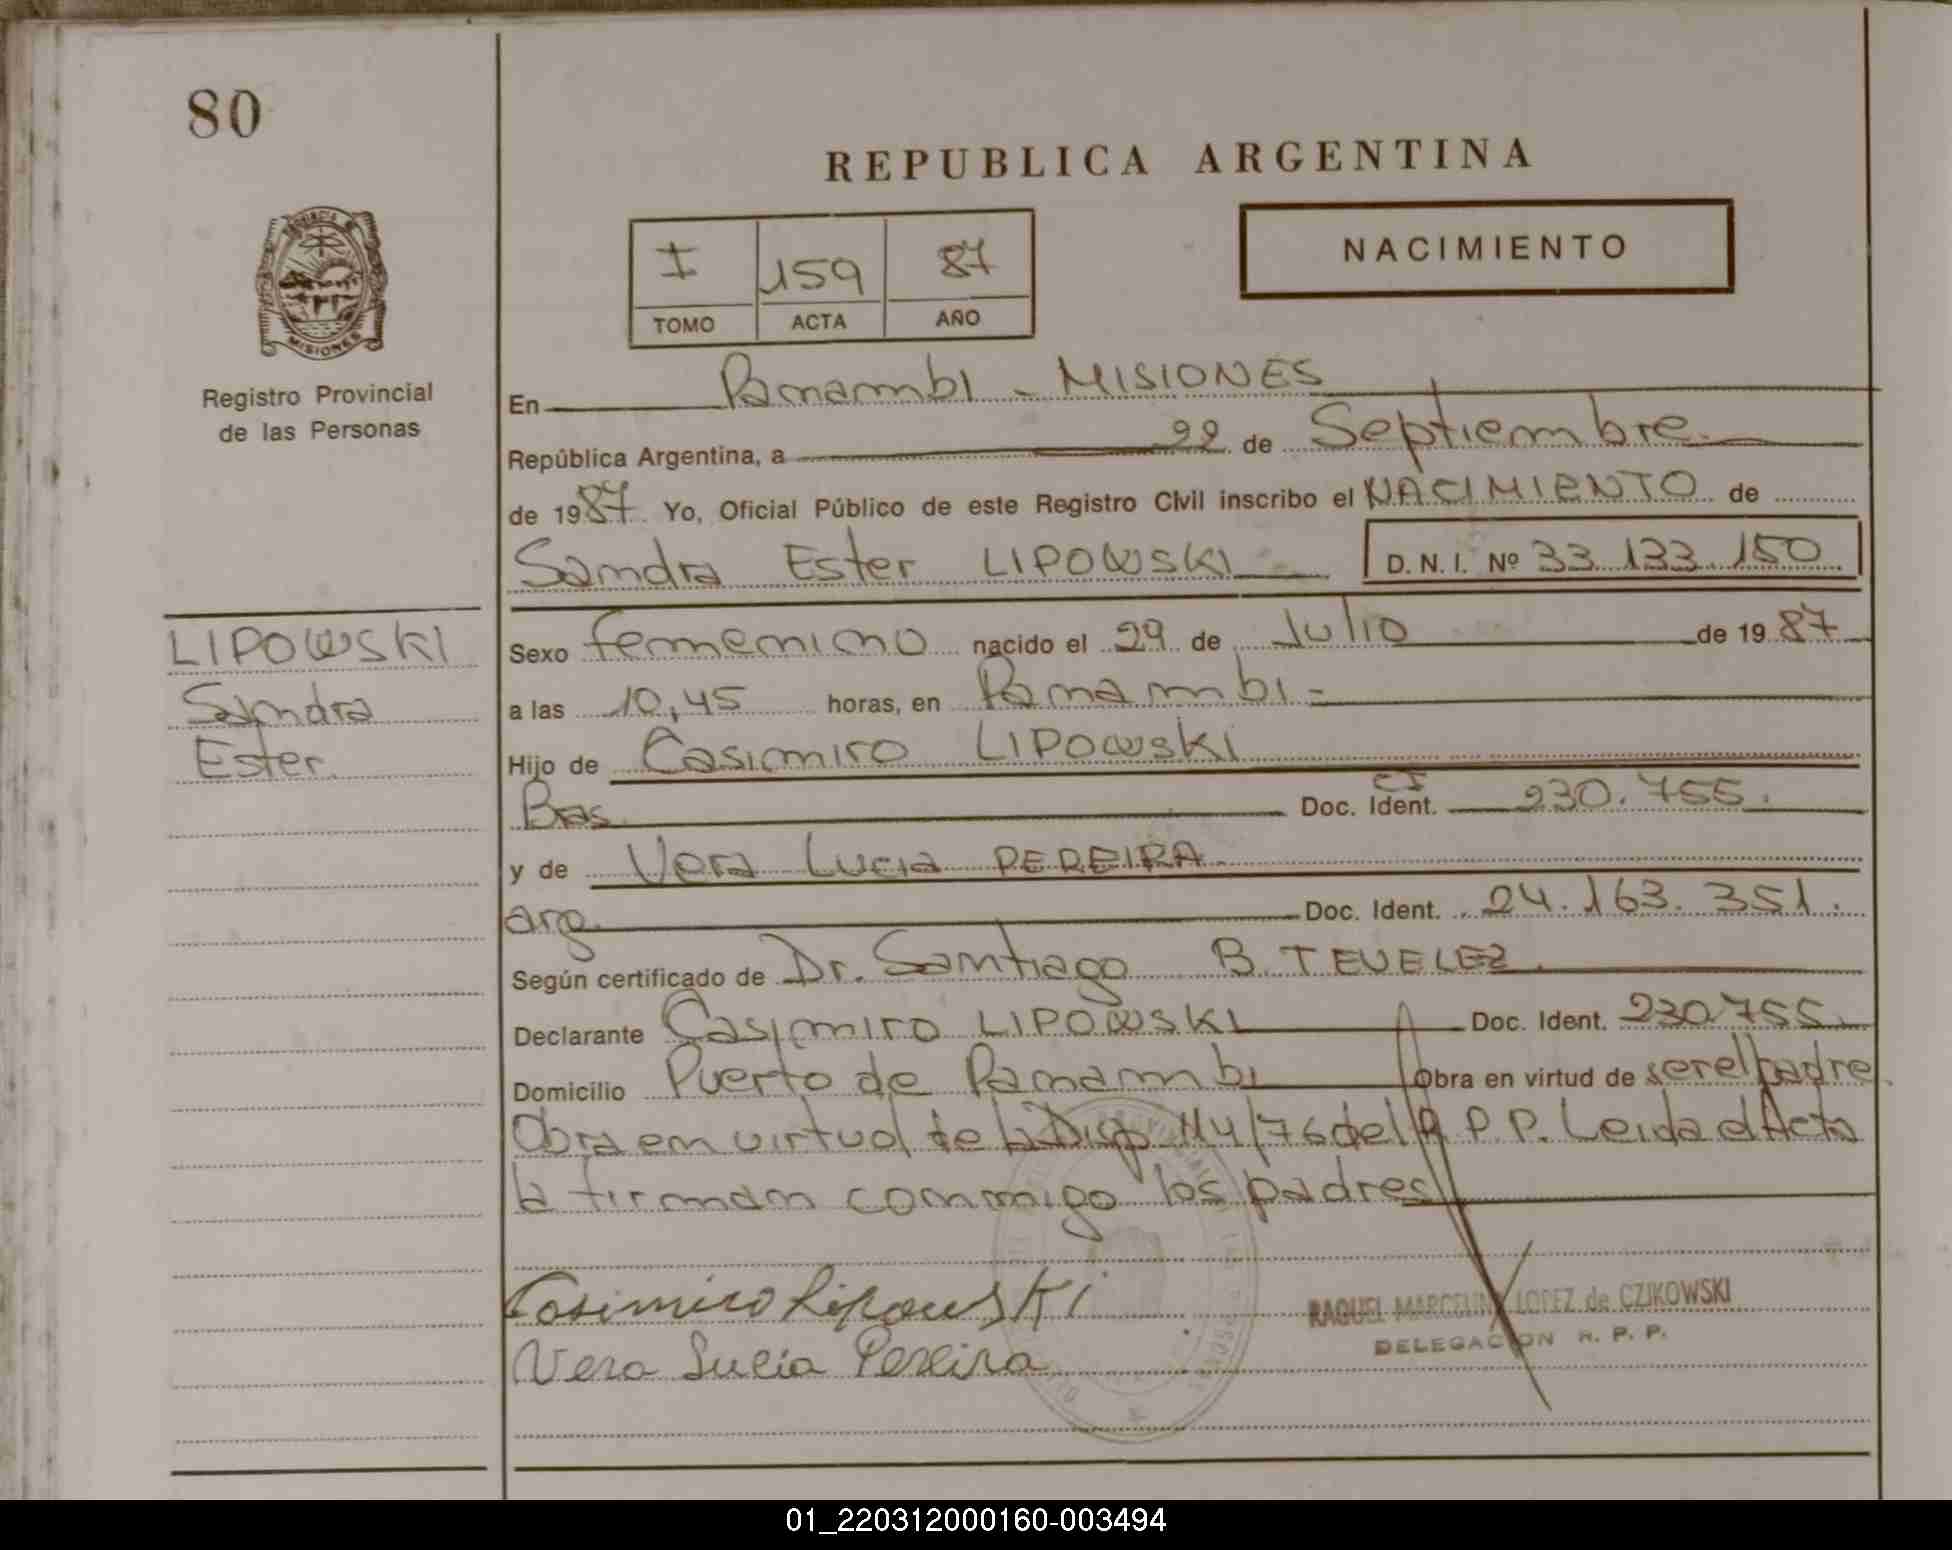 80
REPUBLICA ARGENTINA
PROVINCIA DE
MISIONES
I 159 87
TOMO ACTA AÑO
NACIMIENTO
Registro Provincial
de las Personas
En Panambi - MISIONES
República Argentina, a 22 de Septiembre
de 1987 Yo, Oficial Público de este Registro Civil inscribo el NACIMIENTO de
Sandra Ester LIPOWSKI D.N.I. Nº 33.133.150
LIPOWSKI
Sandra
Ester
Sexo femenino nacido el 29 de Julio de 1987
a las 10,45 horas, en Panambi -
Hijo de Casimiro LIPOWSKI
Bras Doc. Ident. CI 230.755.
y de Vera Lucia PEREIRA
arg. Doc. Ident. 24.163.351.
Según certificado de Dr. Santiago B. TEVELEZ
Declarante Casimiro LIPOWSKI Doc. Ident. 230755
Domicilio Puerto de Panambi Obra en virtud de ser el padre
Obra en virtud de la Disp 114/76 del R P P. Leida el Acta
la firman conmigo los padres
Casimiro Lipowski
Vera Lucia Pereira
RAQUEL MARCELINA LOPEZ de CZIKOWSKI
DELEGACION R. P. P.
01_220312000160-003494